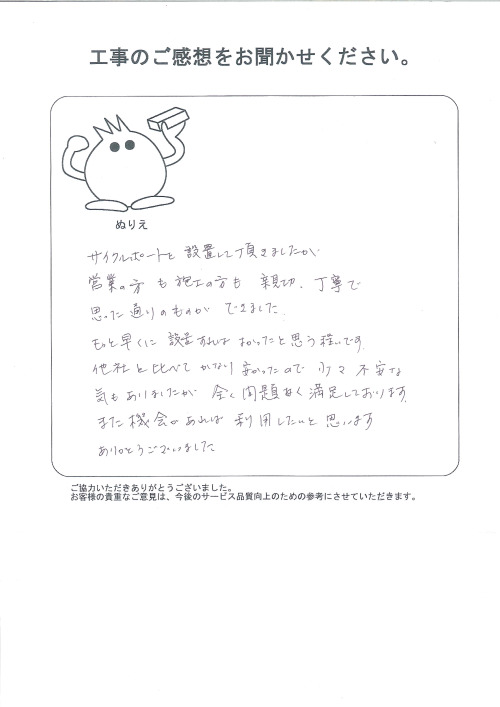 工事のご感想をお聞かせください。
ぬりえ
サイクルポートを設置して頂きましたが
営業の方も施工の方も親切、丁寧で
思った通りのものができました。
もっと早くに設置すればよかったと思う程です。
他社と比べてかなり安かったので少々不安な
気もありましたが全く問題なく満足しております。
また機会があれば利用したいと思います
ありがとうございました
ご協力いただきありがとうございました。
お客様の貴重なご意見は、今後のサービス品質向上のための参考にさせていただきます。